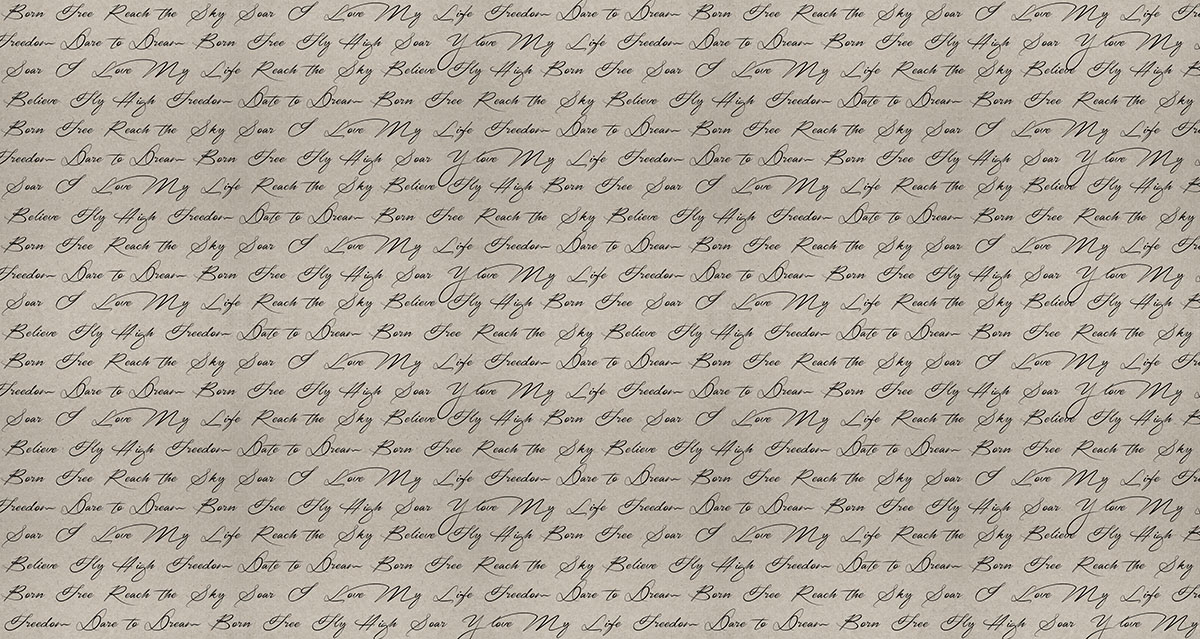 Born Free Reach the Sky Soar I Love My Life Freedom Dare to Dream Born Free Reach the Sky Soar I Love My Life
Freedom Dare to Dream Born Free Fly High Soar Y love My Life Freedom Dare to Dream Born Free Fly High Soar Y love My
Soar I Love My Life Reach the Sky Believe Fly High Born Free Soar I Love My Life Reach the Sky Believe Fly High
Believe Fly High Freedom Date to Dream Born Free Reach the Sky Believe Fly High Freedom Date to Dream Born Free Reach the Sky
Born Free Reach the Sky Soar I Love My Life Freedom Dare to Dream Born Free Reach the Sky Soar I Love My Life
Freedom Dare to Dream Born Free Fly High Soar Y love My Life Freedom Dare to Dream Born Free Fly High Soar Y love My
Soar I Love My Life Reach the Sky Believe Fly High Born Free Soar I Love My Life Reach the Sky Believe Fly High
Believe Fly High Freedom Date to Dream Born Free Reach the Sky Believe Fly High Freedom Date to Dream Born Free Reach the Sky
Born Free Reach the Sky Soar I Love My Life Freedom Dare to Dream Born Free Reach the Sky Soar I Love My Life
Freedom Dare to Dream Born Free Fly High Soar Y love My Life Freedom Dare to Dream Born Free Fly High Soar Y love My
Soar I Love My Life Reach the Sky Believe Fly High Born Free Soar I Love My Life Reach the Sky Believe Fly High
Believe Fly High Freedom Date to Dream Born Free Reach the Sky Believe Fly High Freedom Date to Dream Born Free Reach the Sky
Born Free Reach the Sky Soar I Love My Life Freedom Dare to Dream Born Free Reach the Sky Soar I Love My Life
Freedom Dare to Dream Born Free Fly High Soar Y love My Life Freedom Dare to Dream Born Free Fly High Soar Y love My
Soar I Love My Life Reach the Sky Believe Fly High Born Free Soar I Love My Life Reach the Sky Believe Fly High
Believe Fly High Freedom Date to Dream Born Free Reach the Sky Believe Fly High Freedom Date to Dream Born Free Reach the Sky
Born Free Reach the Sky Soar I Love My Life Freedom Dare to Dream Born Free Reach the Sky Soar I Love My Life
Freedom Dare to Dream Born Free Fly High Soar Y love My Life Freedom Dare to Dream Born Free Fly High Soar Y love My
Soar I Love My Life Reach the Sky Believe Fly High Born Free Soar I Love My Life Reach the Sky Believe Fly High
Believe Fly High Freedom Date to Dream Born Free Reach the Sky Believe Fly High Freedom Date to Dream Born Free Reach the Sky
Born Free Reach the Sky Soar I Love My Life Freedom Dare to Dream Born Free Reach the Sky Soar I Love My Life
Freedom Dare to Dream Born Free Fly High Soar Y love My Life Freedom Dare to Dream Born Free Fly High Soar Y love My